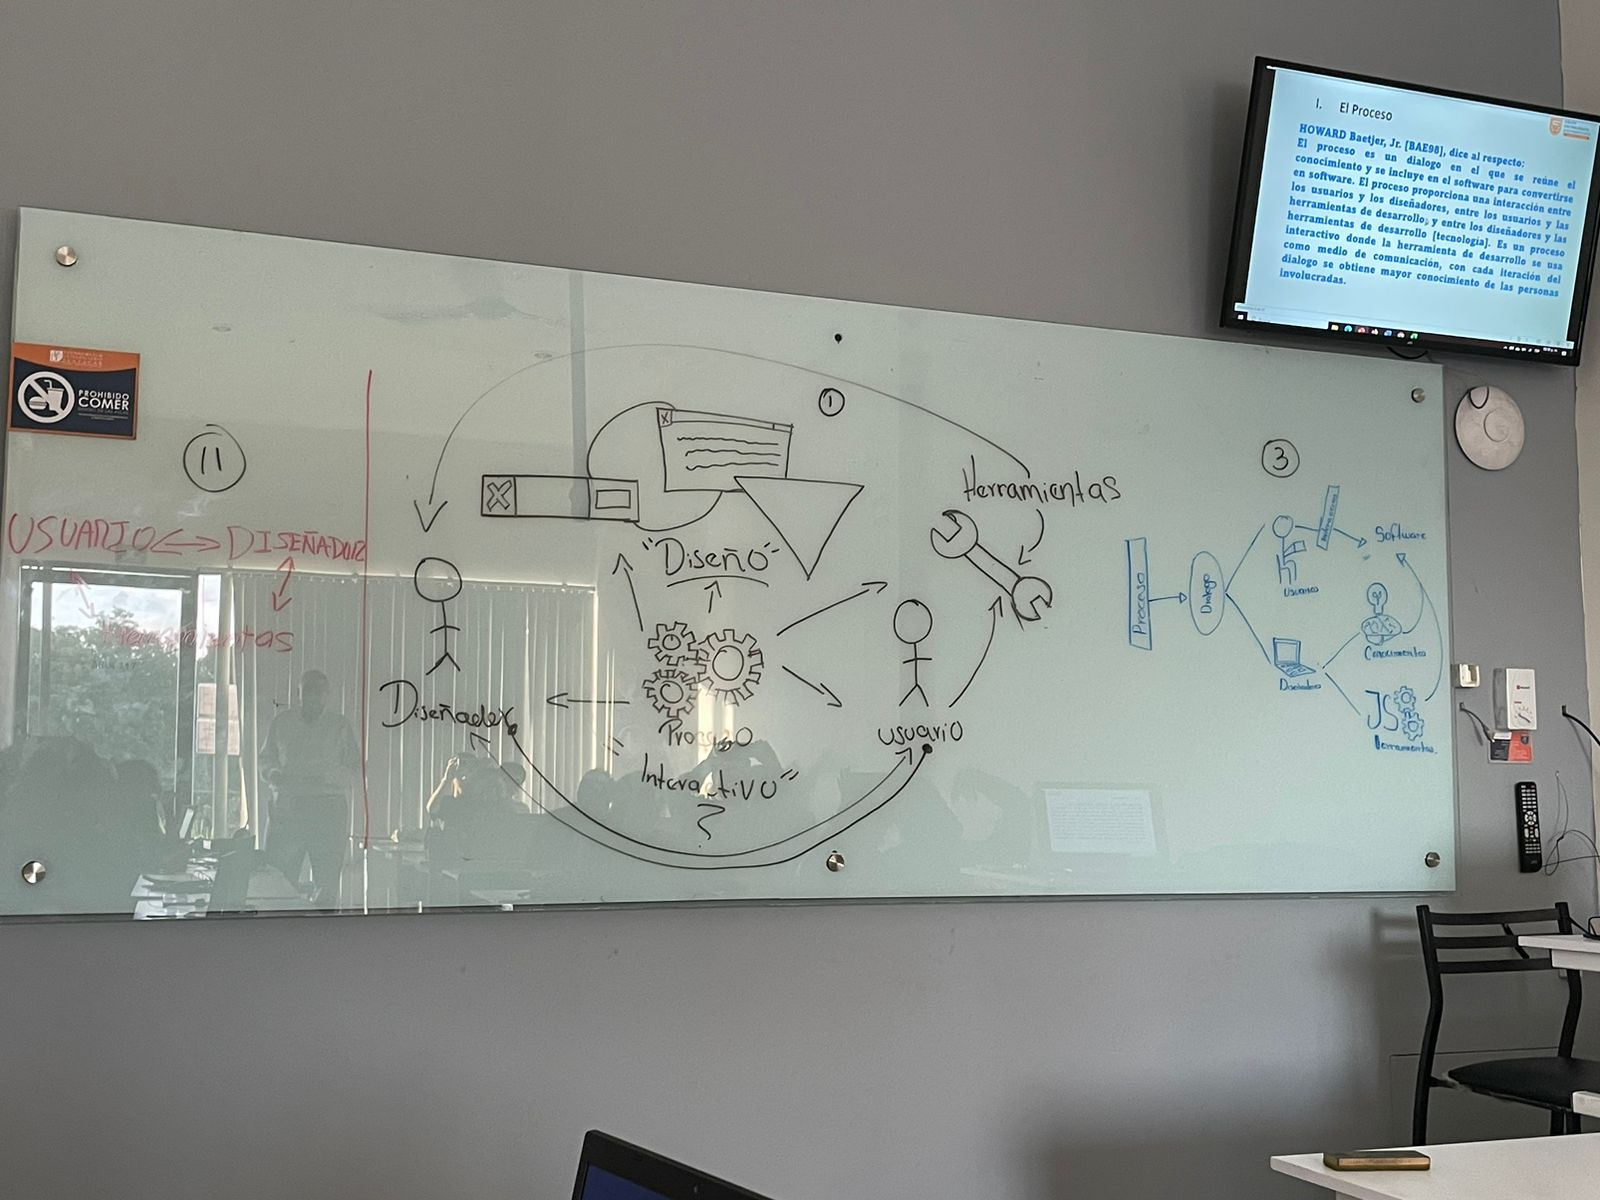 I. El Proceso
HOWARD Baetjer, Jr. [BAE98], dice al respecto:
El proceso es un dialogo en el que se reúne el
conocimiento y se incluye en el software para convertirse
en software. El proceso proporciona una interacción entre
los usuarios y los diseñadores, entre los usuarios y las
herramientas de desarrollo; y entre los diseñadores y las
herramientas de desarrollo [tecnología]. Es un proceso
interactivo donde la herramienta de desarrollo se usa
como medio de comunicación, con cada iteración del
dialogo se obtiene mayor conocimiento de las personas
involucradas.
PROHIBIDO
COMER
11
USUARIO
DISEÑADOR
Herramientas
1
"Diseño"
Herramientas
Diseñador
Proceso
"Interactivo"
?
usuario
3
Proceso
Dialogo
Usuarios
Software
Diseñador
Conocimientos
JS
Herramientas.